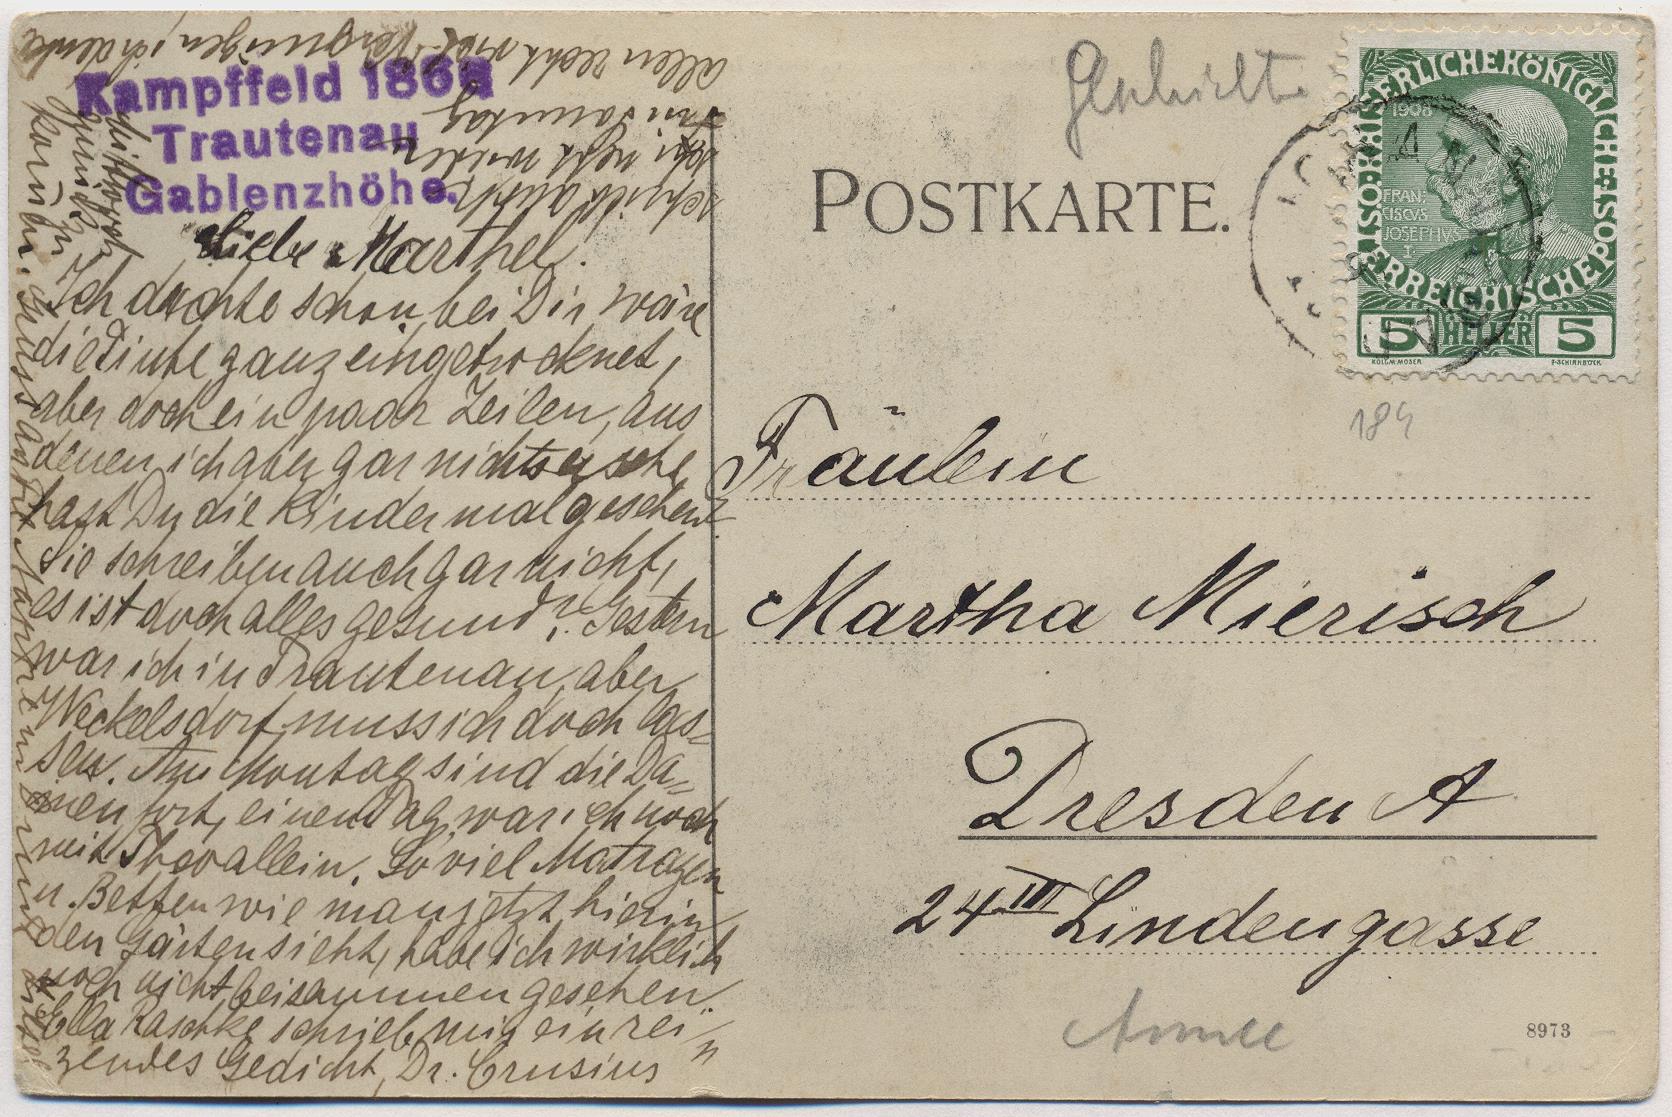 Kampffeld 1866
Trautenau
Gablenzhöhe.
Liebe Marthel.
Ich dachte schon bei Dir wäre
die Tinte ganz eingetrocknet,
aber doch ein paar Zeilen, aus
denen ich aber gar nichts ersehe,
hast Du die Kinder mal gesehen?
Sie schreiben auch gar nicht,
es ist doch alles gesund? Gestern
war ich in Trautenau, aber
Weckelsdorf muss ich doch las-
sen. Am Montag sind die Da-
men fort, einen Tag war ich noch
mit Theo allein. So viel Matrazen
u. Betten wie man jetzt hier in
den Gärten sieht, habe ich wirklich
noch nicht beisammen gesehen.
Ella Raschke schrieb mir ein rei-
zendes Gedicht, Dr. Crusius
schickt auch
nicht wieder
allen recht viel Vergnügen, ich denke
Mittwoch
POSTKARTE.
Geschichte
KAISERLICHE KÖNIGLICHE ÖSTERREICHISCHE POST
1908
FRAN-
CISCVS
JOSEPHVS
I.
5 HELLER 5
KOLOM.MOSER
F.SCHIRNBÖCK
189
Fräulein
Martha Mierisch
Dresden A
24 III Lindengasse
Armee
8973